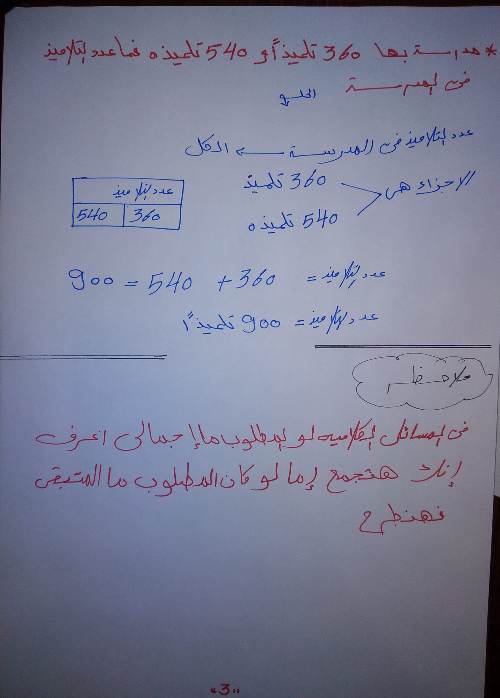 * مدرسة بها 360 تلميذاً و 540 تلميذه فما عدد التلاميذ
فى المدرسة
الحل
عدد التلاميذ فى المدرسة ← الكل
الاجزاء هى 360 تلميذ
540 تلميذه
عدد التلاميذ
360 540
عدد التلاميذ = 360 + 540 = 900
عدد التلاميذ = 900 تلميذاً
ملاحظه
فى المسائل الكلاميه لو المطلوب ما إجمالى اعرف
إنك هتجمع إما لو كان المطلوب ما المتبقى
فهنطرح
"3"